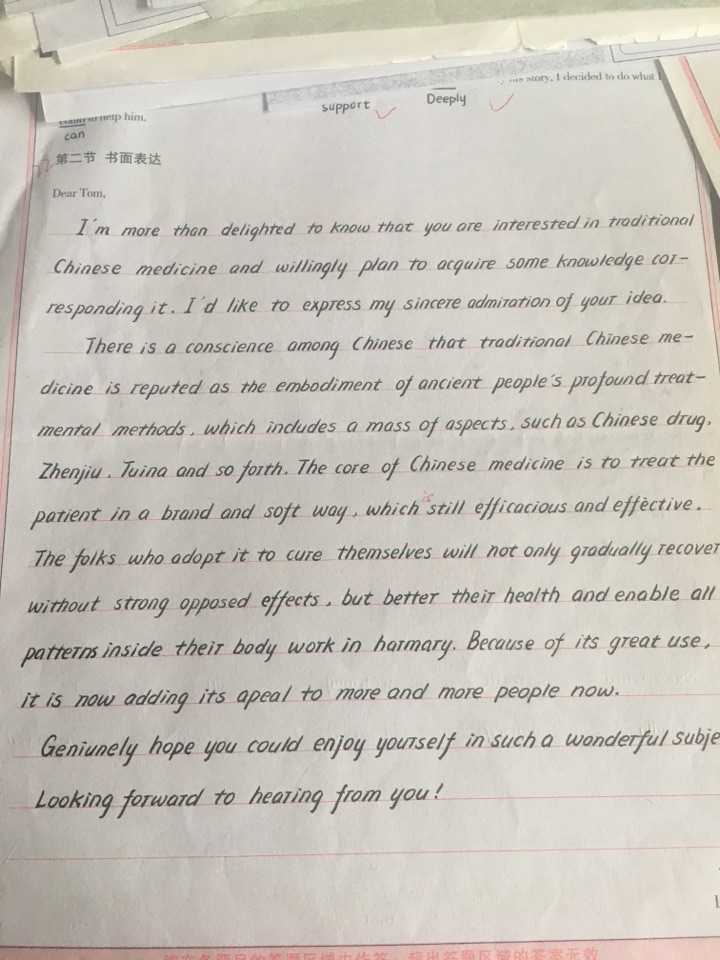 story, I decided to do what I
support Deeply
help him.
can
第二节 书面表达
Dear Tom,
I'm more than delighted to know that you are interested in traditional
Chinese medicine and willingly plan to acquire some knowledge cor-
responding it. I'd like to express my sincere admiration of your idea.
There is a conscience among Chinese that traditional Chinese me-
dicine is reputed as the embodiment of ancient people's profound treat-
mental methods, which includes a mass of aspects, such as Chinese drug,
Zhenjiu, Tuina and so forth. The core of Chinese medicine is to treat the
is
patient in a brand and soft way, which still efficacious and effective.
The folks who adopt it to cure themselves will not only gradually recover
without strong opposed effects, but better their health and enable all
patterns inside their body work in harmary. Because of its great use,
it is now adding its apeal to more and more people now.
Geniunely hope you could enjoy yourself in such a wonderful subje
Looking forward to hearing from you!